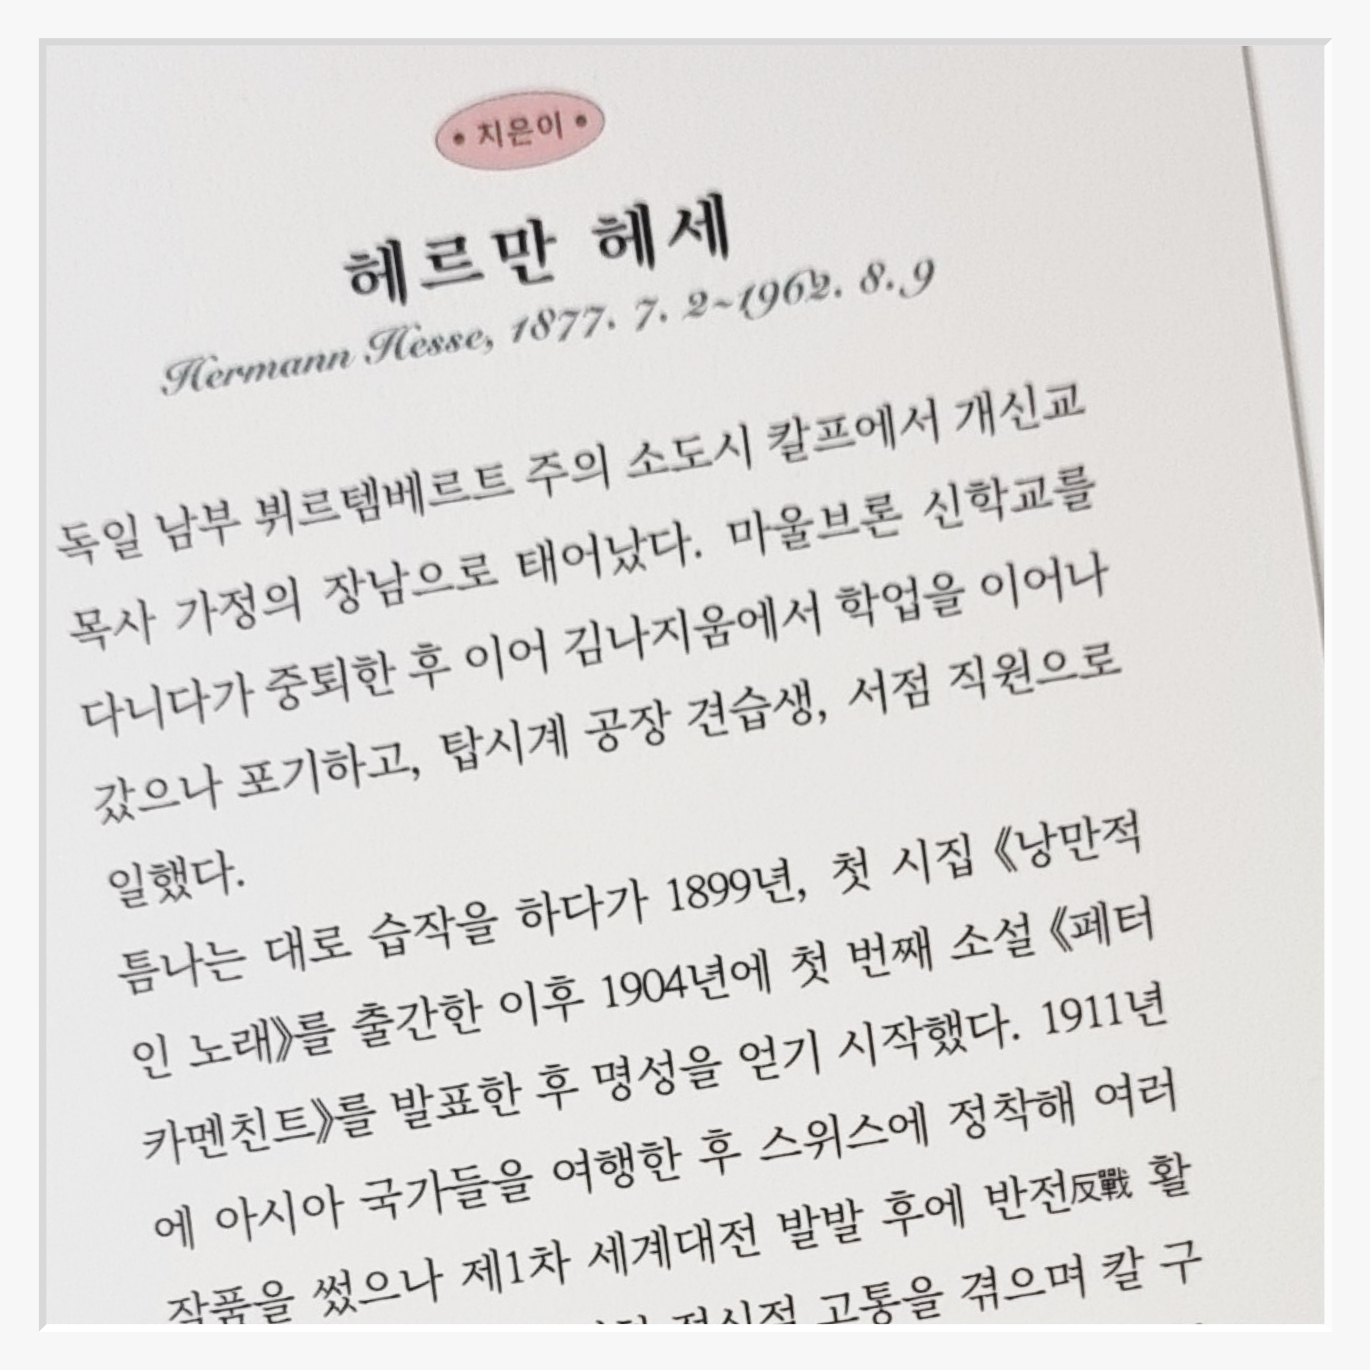 • 지은이 •
헤르만 헤세
Hermann Hesse, 1877. 7. 2~1962. 8. 9
독일 남부 뷔르템베르트 주의 소도시 칼프에서 개신교
목사 가정의 장남으로 태어났다. 마울브론 신학교를
다니다가 중퇴한 후 이어 김나지움에서 학업을 이어나
갔으나 포기하고, 탑시계 공장 견습생, 서점 직원으로
일했다.
틈나는 대로 습작을 하다가 1899년, 첫 시집 《낭만적
인 노래》를 출간한 이후 1904년에 첫 번째 소설 《페터
카멘친트》를 발표한 후 명성을 얻기 시작했다. 1911년
에 아시아 국가들을 여행한 후 스위스에 정착해 여러
작품을 썼으나 제1차 세계대전 발발 후에 반전反戰 활
정신적 고통을 겪으며 칼 구